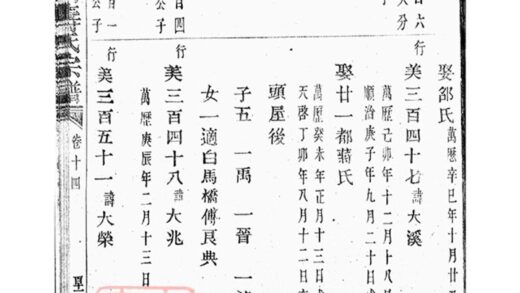 日六
大分
行
娶邵氏 萬曆辛巳年十月廿五
美三百四十七 諱大溪
萬曆己卯年十二月十八日
順治庚子年九月二十日
娶廿一都蔣氏
萬曆癸未年正月十三日
天啓丁卯年八月十二日
頭屋後
子五 一禹 一晉
女一適白馬橋傅良典
日四
公子
行
美三百四十八 諱大兆
萬曆庚辰年二月十三日
日一
公子
行
美三百五十一 諱大榮
氏宗譜 卷十四